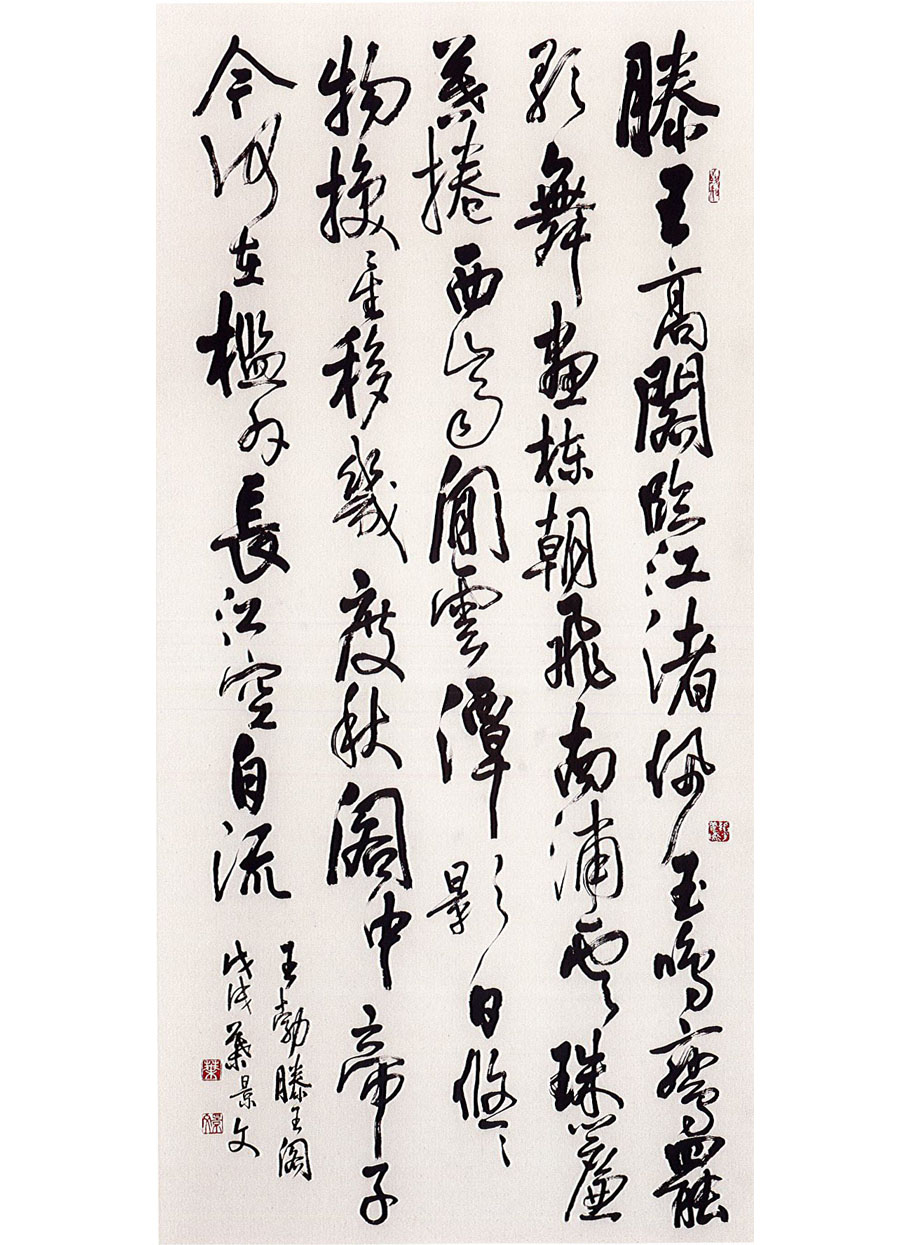 滕王高閣臨江渚佩玉鳴鸞罷
歌舞畫棟朝飛南浦雲珠簾
暮捲西山雨閒雲潭影日悠々
物換星移幾度秋閣中帝子
今何在檻外長江空自流
王勃滕王閣
戊戌葉景文
葉